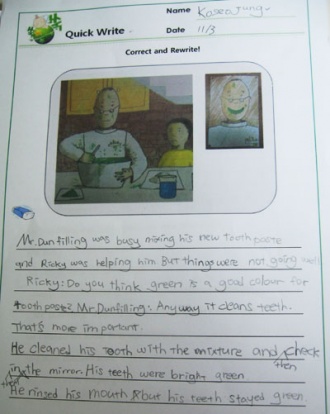 Name Kosea Jung
Quick Write
Date 11/3
Correct and Rewrite!
Mr. Dunfilling was busy mixing his new tooth paste
and Ricky was helping him. But things were not going well
Ricky: Do you think green is a good colour for
tooth paste? Mr. Dunfilling: Anyway it cleans teeth.
That's more importent.
He cleaned his tooth with the mixture and check
then
in the mirror. His teeth were bright green
then
He rinsed his mouth but his teeth stayed green